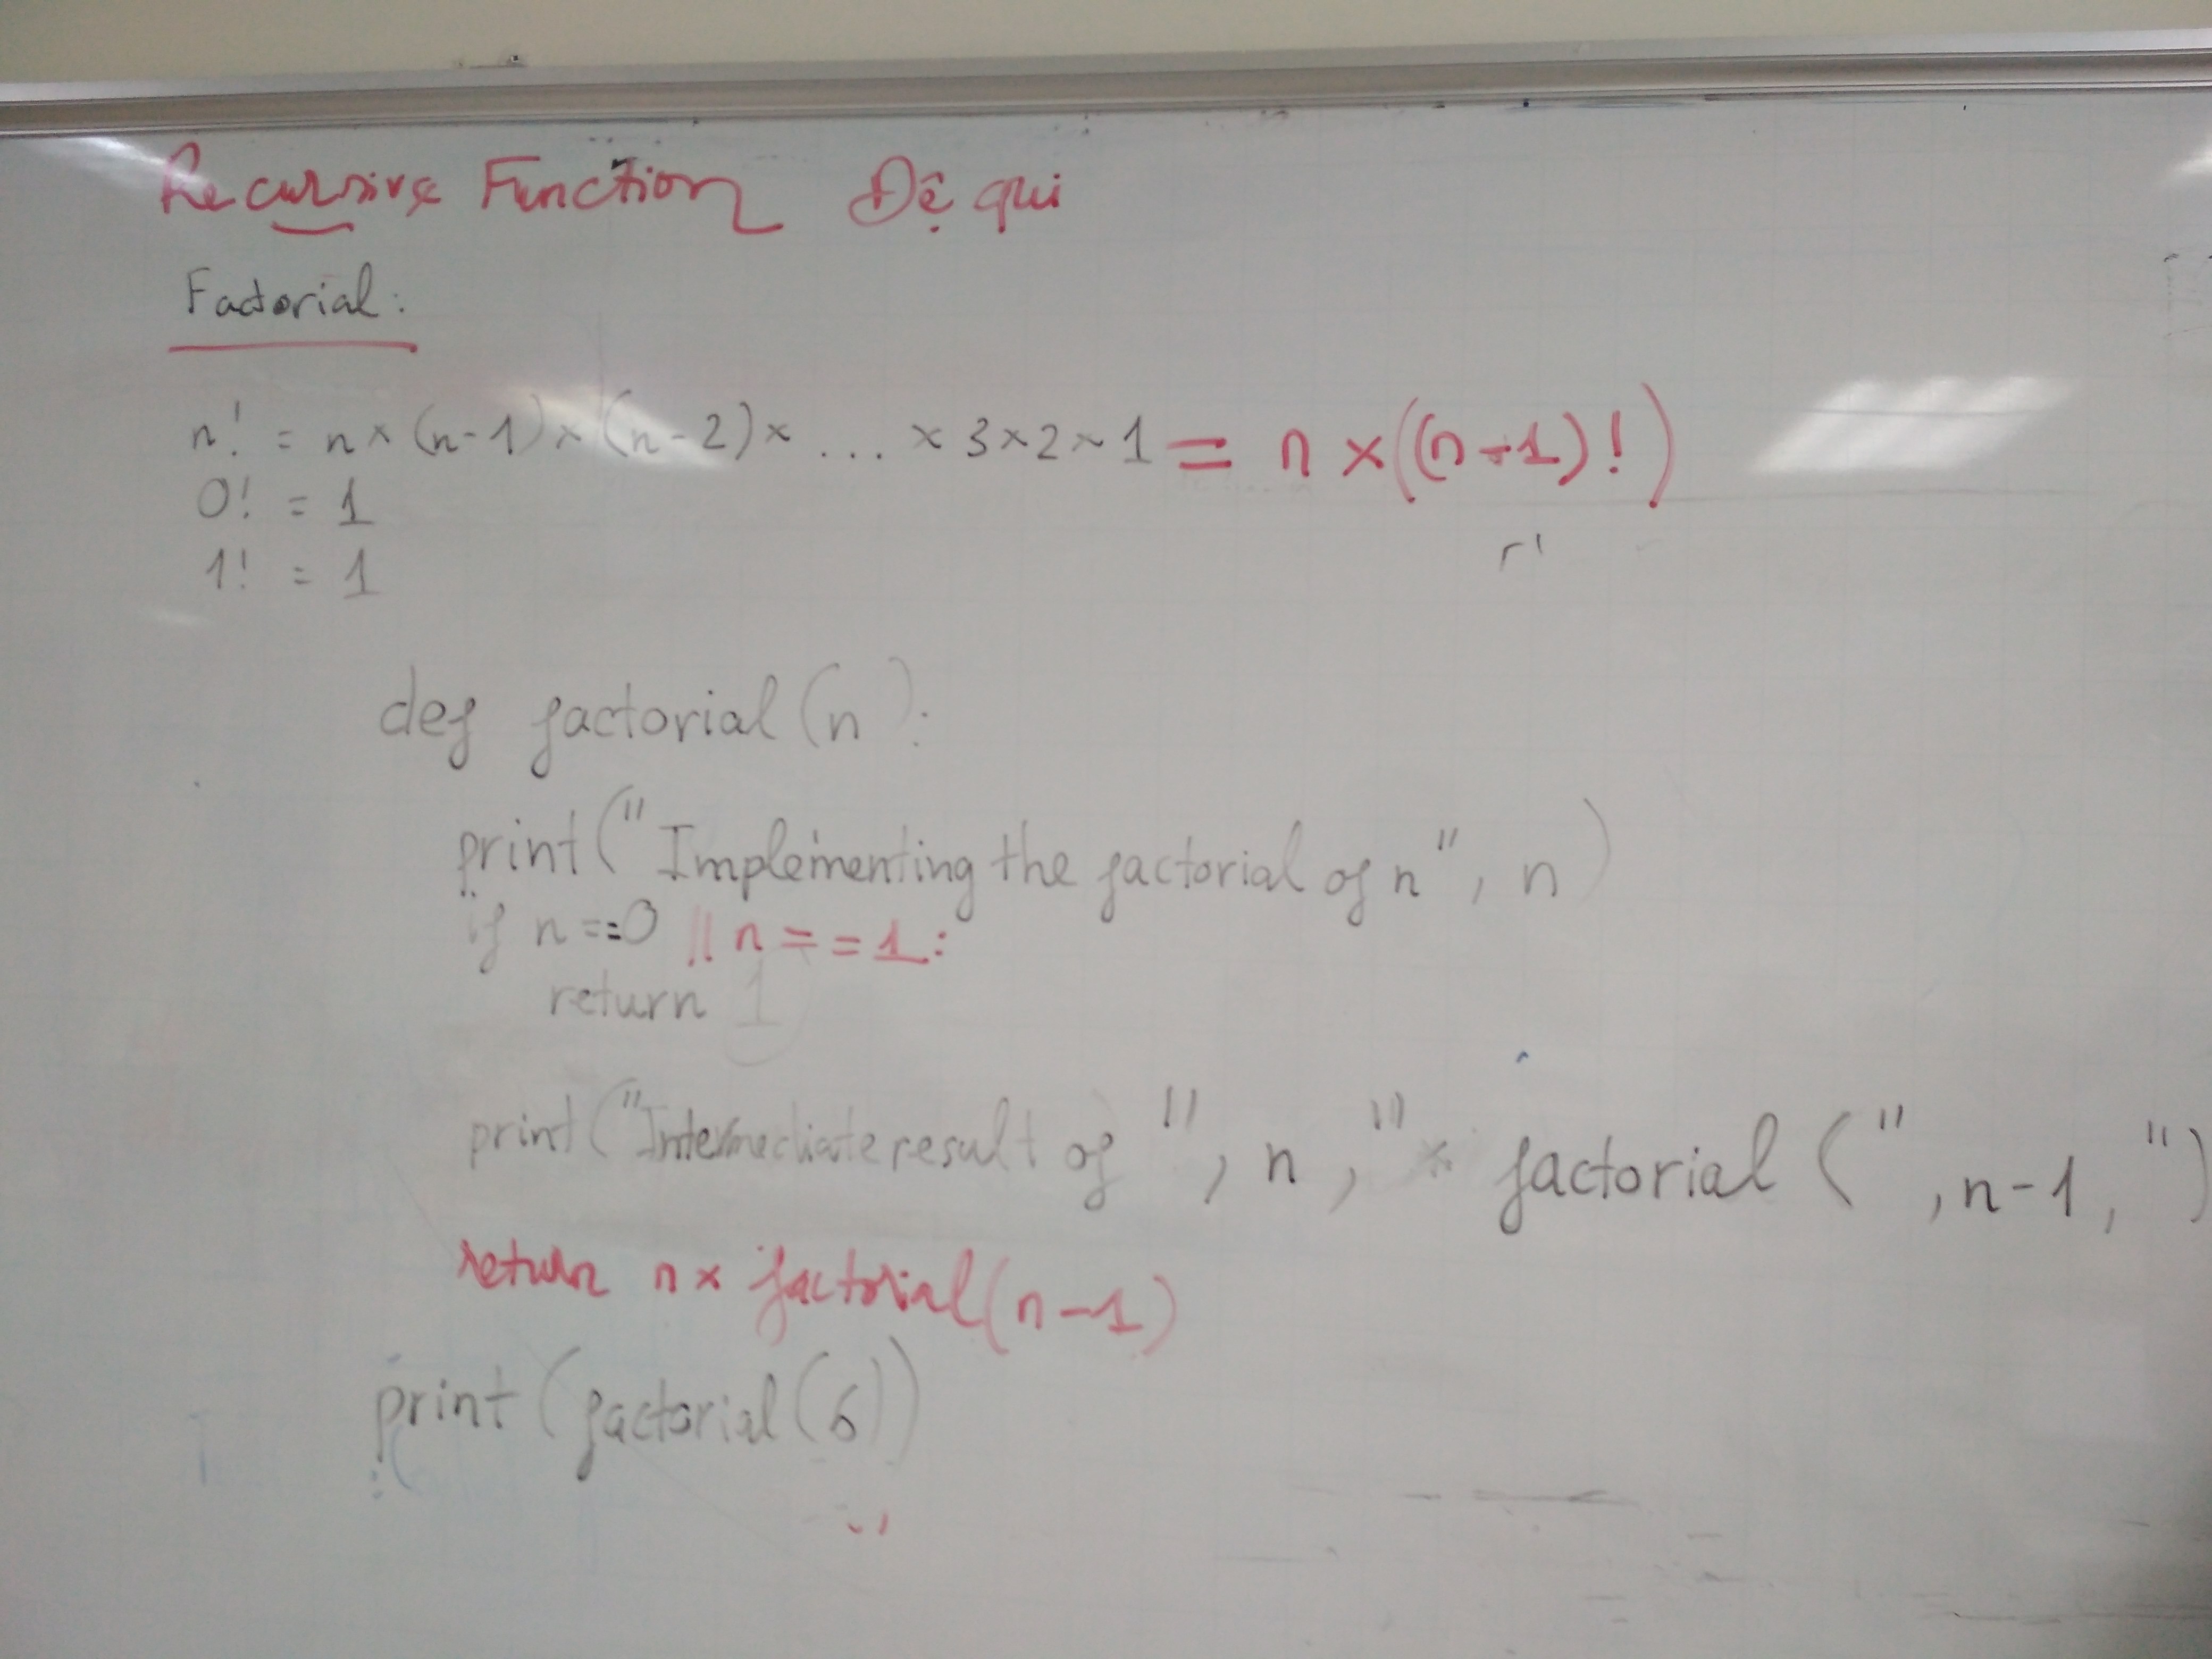 Recursive Function Đệ qui
Factorial:
n! = n × (n-1) × (n-2) × ... × 3 × 2 × 1 = n × ((n-1)!)
0! = 1
1! = 1
def factorial(n):
print("Implementing the factorial of n", n)
if n==0 || n==1:
return 1
print("Intermediate result of ", n, "* factorial (", n-1, ")
return n × factorial(n-1)
print(factorial(6))